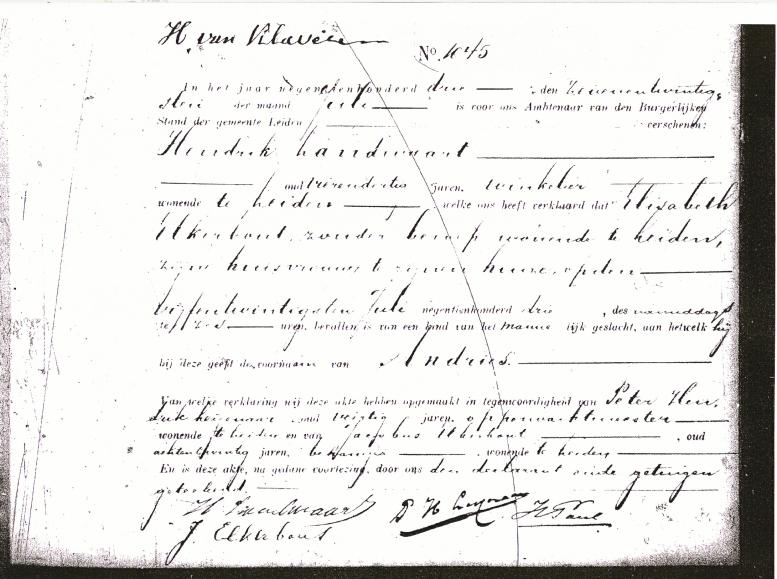 H. van Klaveren
No. 1045
In het jaar negentienhonderd drie den zevenentwintig-
sten der maand Juli is voor ons Ambtenaar van den Burgerlijken
Stand der gemeente Leiden verschenen:
Hendrik Landwaart
oud jaren, winkelier
wonende te Leiden welke ons heeft verklaard dat Elisabeth
Elkerbout, zonder beroep wonende te Leiden,
zijne huisvrouw te zijnen huize, op den
vijfentwintigsten Juli negentienhonderd drie, des namiddags
te zes uren, bevallen is van een kind van het mannelijk geslacht, aan hetwelk hij
bij deze geeft de voornaam van Andries.
Van welke verklaring wij deze akte hebben opgemaakt in tegenwoordigheid van Peter Hen-
drik oud jaren, opperwachtmeester
wonende te Leiden en van Jacobus Elkerbout, oud
achtentwintig jaren, wonende te Leiden
En is deze akte, na gedane voorlezing, door ons den declarant en de getuigen
geteekend.
H Landwaart P H H Paul
J. Elkerbout